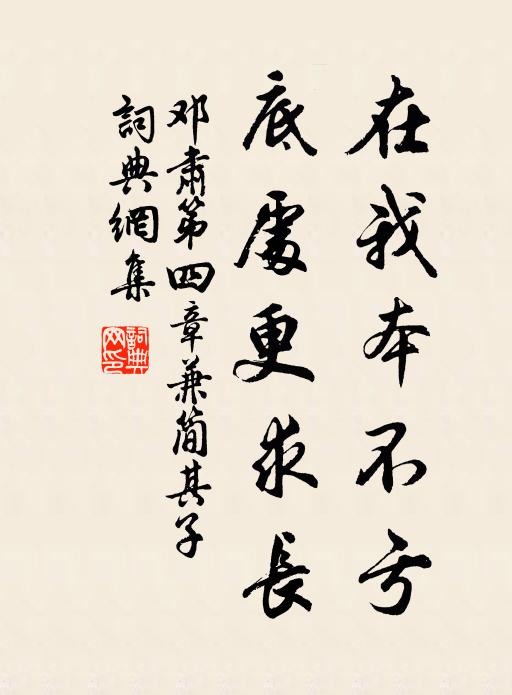 在我本不亏
底處更求長
邓肃第四章兼简其子
詞典網集
詞典網印